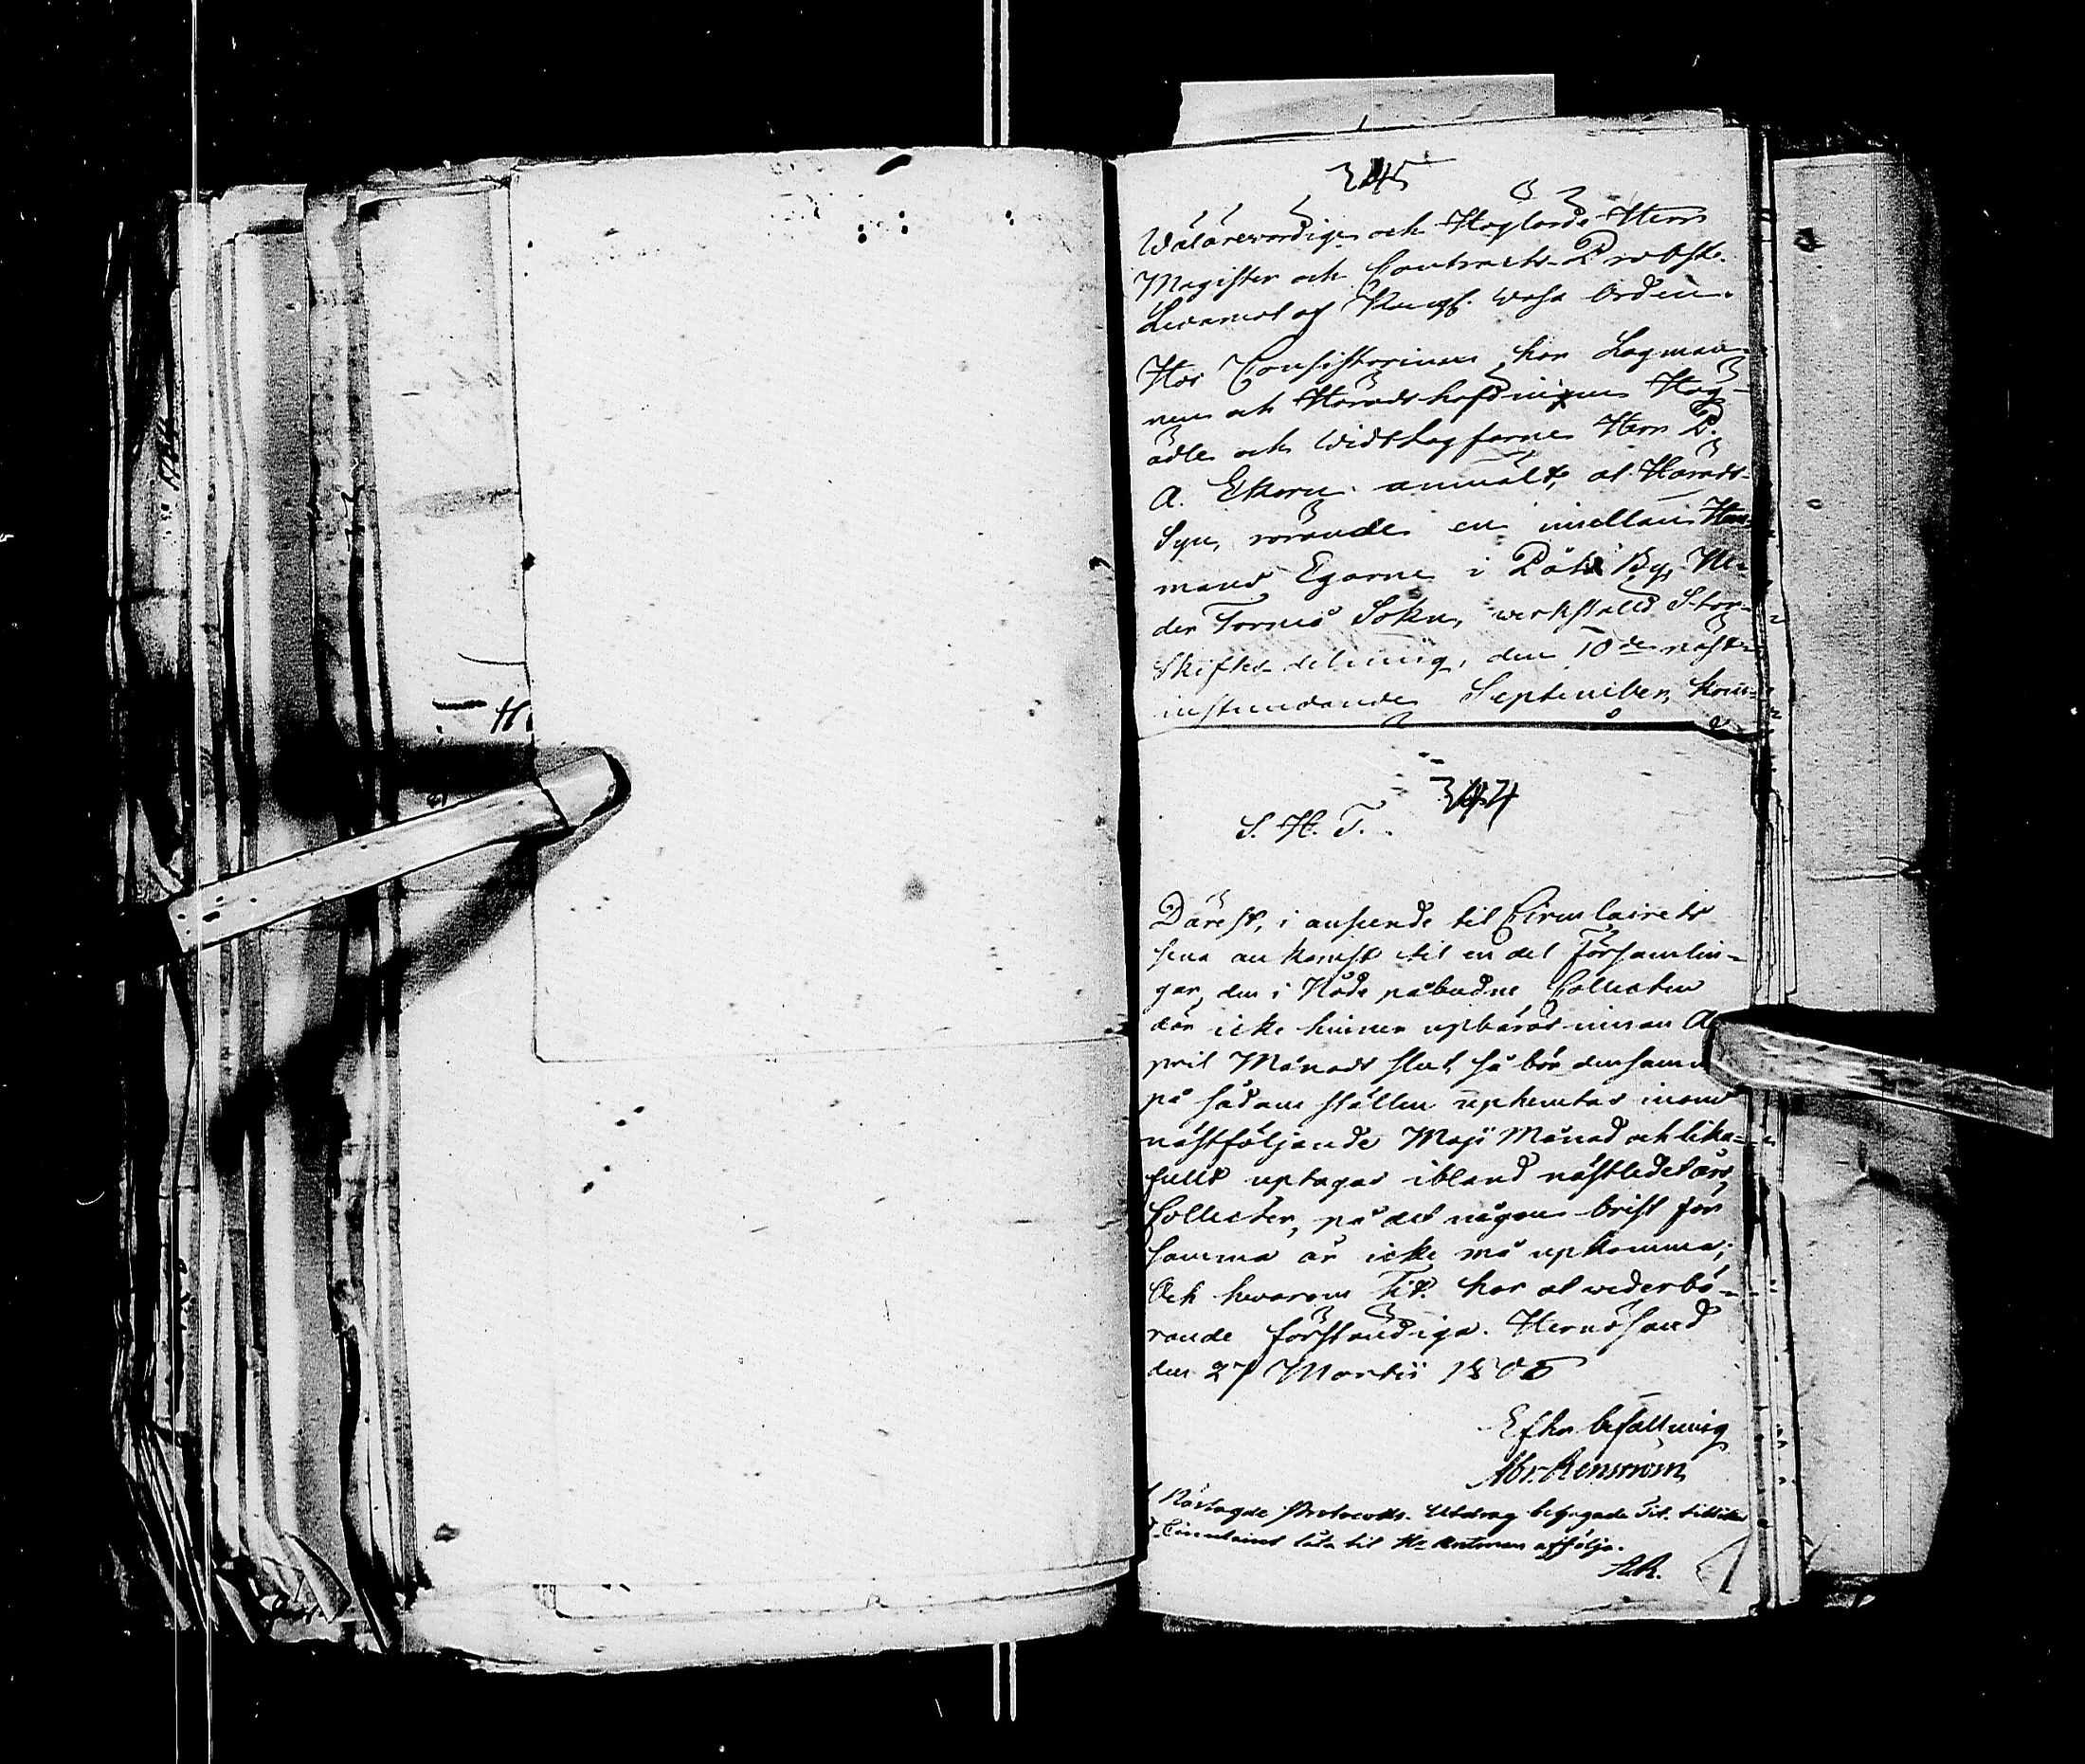 345
Wälärewördige och Höglärde Herr
Magister och Contracts-Probst
Ledamot af Kongl. Wasa Orden.
Hos Consistorium har Lagman-
nen och Häradshöfdingen Hög-
ädle och Widtlagfarne Herr P.
A. Ekorn anmält, at Härads-
Syn, rörande en imellan Hem-
mans Egarne i Päkk By, Ne-
der Torneå Sokn, verkstäld Stor-
Skiftes delning, den 10de näst-
instundande September, kom-
344
S. H. T.
Därest, i anseende til Circulairets
sena ankomst til en del Församlin-
gar, den i Nåde påbudne Collecten
där icke hinner upbäras innan A-
pril Månads slut, så bör densamma
på sådane ställen uphemtas inom
nästföljande Maji Månad och lika-
fullt uptagas ibland nästledet års
Collecter, på det någon brist för
samma år icke må upkomma;
Och hvarom Tit. har at wederbö-
rande förständiga. Hernösand
den 27 Martii 1805
Efter befallning
Abr. Renström
Närlagde Protocolls-Utdrag behagade Tit. tillika
Circulairet låta til Hr Antman affölja.
AR.